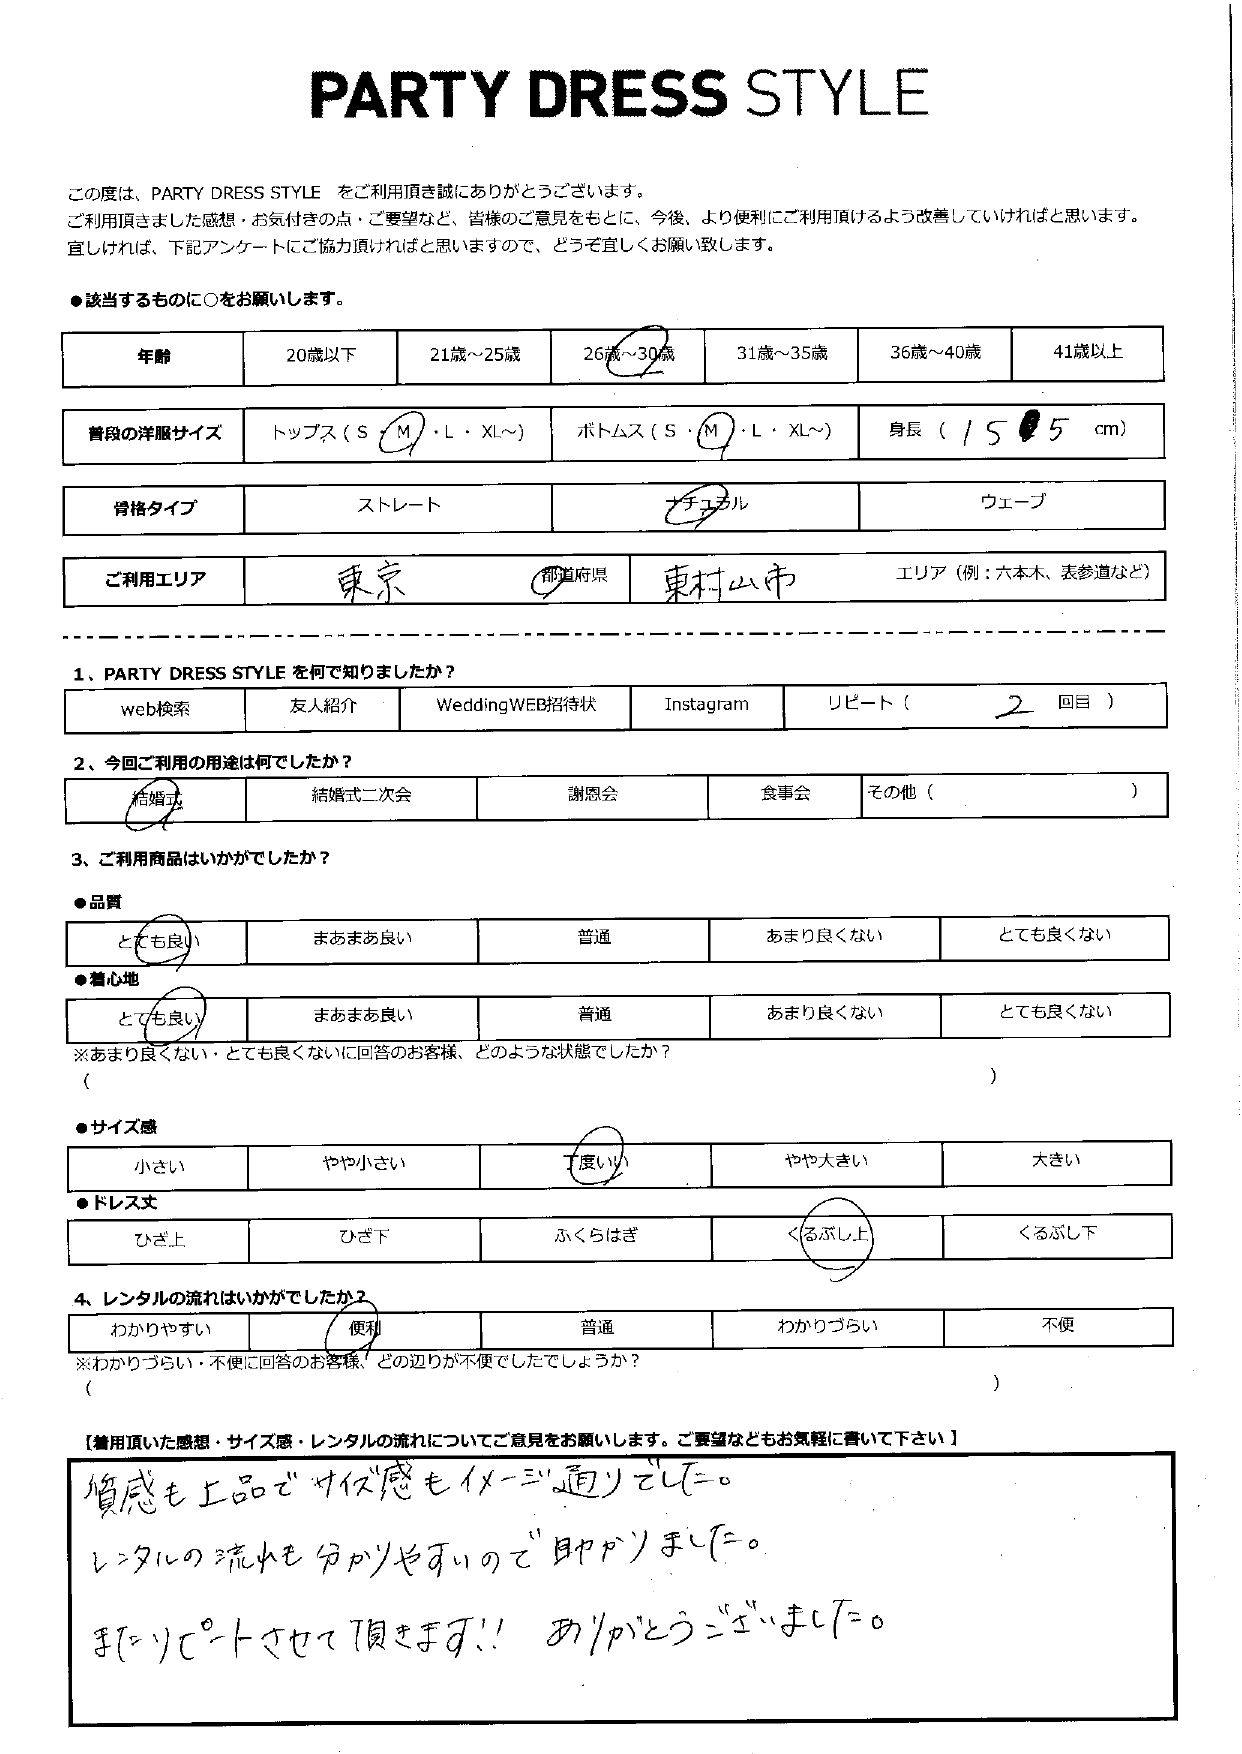 PARTY DRESS STYLE
この度は、PARTY DRESS STYLE をご利用頂き誠にありがとうございます。
ご利用頂きました感想・お気付きの点・ご要望など、皆様のご意見をもとに、今後、より便利にご利用頂けるよう改善していければと思います。
宜しければ、下記アンケートにご協力頂ければと思いますので、どうぞ宜しくお願い致します。
●該当するものに○をお願いします。
年齢 20歳以下 21歳～25歳 26歳～30歳 31歳～35歳 36歳～40歳 41歳以上
普段の洋服サイズ トップス（ S ・ M ・ L ・ XL～） ボトムス（ S ・ M ・ L ・ XL～） 身長（ 155 cm）
骨格タイプ ストレート ナチュラル ウェーブ
ご利用エリア 東京 都道府県 東村山市 エリア（例：六本木、表参道など）
1、PARTY DRESS STYLE を何で知りましたか？
web検索 友人紹介 WeddingWEB招待状 Instagram リピート（ 2 回目 ）
2、今回ご利用の用途は何でしたか？
結婚式 結婚式二次会 謝恩会 食事会 その他（ ）
3、ご利用商品はいかがでしたか？
●品質
とても良い まあまあ良い 普通 あまり良くない とても良くない
●着心地
とても良い まあまあ良い 普通 あまり良くない とても良くない
※あまり良くない・とても良くないに回答のお客様、どのような状態でしたか？
（ ）
●サイズ感
小さい やや小さい 丁度いい やや大きい 大きい
●ドレス丈
ひざ上 ひざ下 ふくらはぎ くるぶし上 くるぶし下
4、レンタルの流れはいかがでしたか？
わかりやすい 便利 普通 わかりづらい 不便
※わかりづらい・不便に回答のお客様、どの辺りが不便でしたでしょうか？
（ ）
【着用頂いた感想・サイズ感・レンタルの流れについてご意見をお願いします。ご要望などもお気軽に書いて下さい】
質感も上品でサイズ感もイメージ通りでした。
レンタルの流れも分かりやすいので助かりました。
またリピートさせて頂きます!! ありがとうございました。